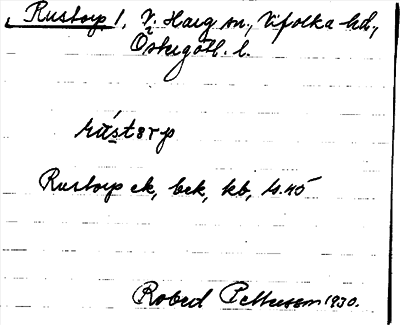 Rustorp 1, V. Harg sn, Vifolka hd,
Östergötl. l.
rústərp
Rustorp ek, bek, kb, 4.45
Robert Pettersson 1930.